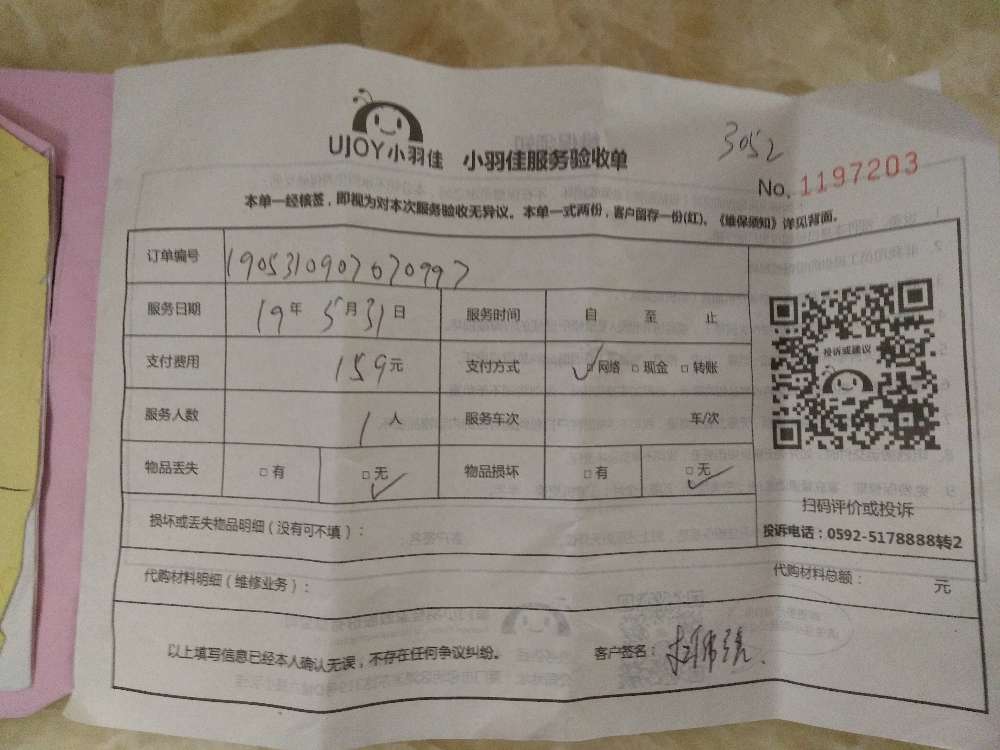 3052
UJOY小羽佳 小羽佳服务验收单
No. 1197203
本单一经核签，即视为对本次服务验收无异议。本单一式两份，客户留存一份(红)、《维保须知》详见背面。
订单编号 1905310907070997
服务日期 19年5月31日 服务时间 自 至 止
支付费用 159元 支付方式 ✓□网络 □现金 □转账
服务人数 1人 服务车次 车/次
物品丢失 □有 □无✓ 物品损坏 □有 □无✓
投诉或建议
扫码评价或投诉
投诉电话：0592-5178888转2
损坏或丢失物品明细（没有可不填）：
代购材料明细（维修业务）： 代购材料总额： 元
以上填写信息已经本人确认无误，不存在任何争议纠纷。 客户签名：